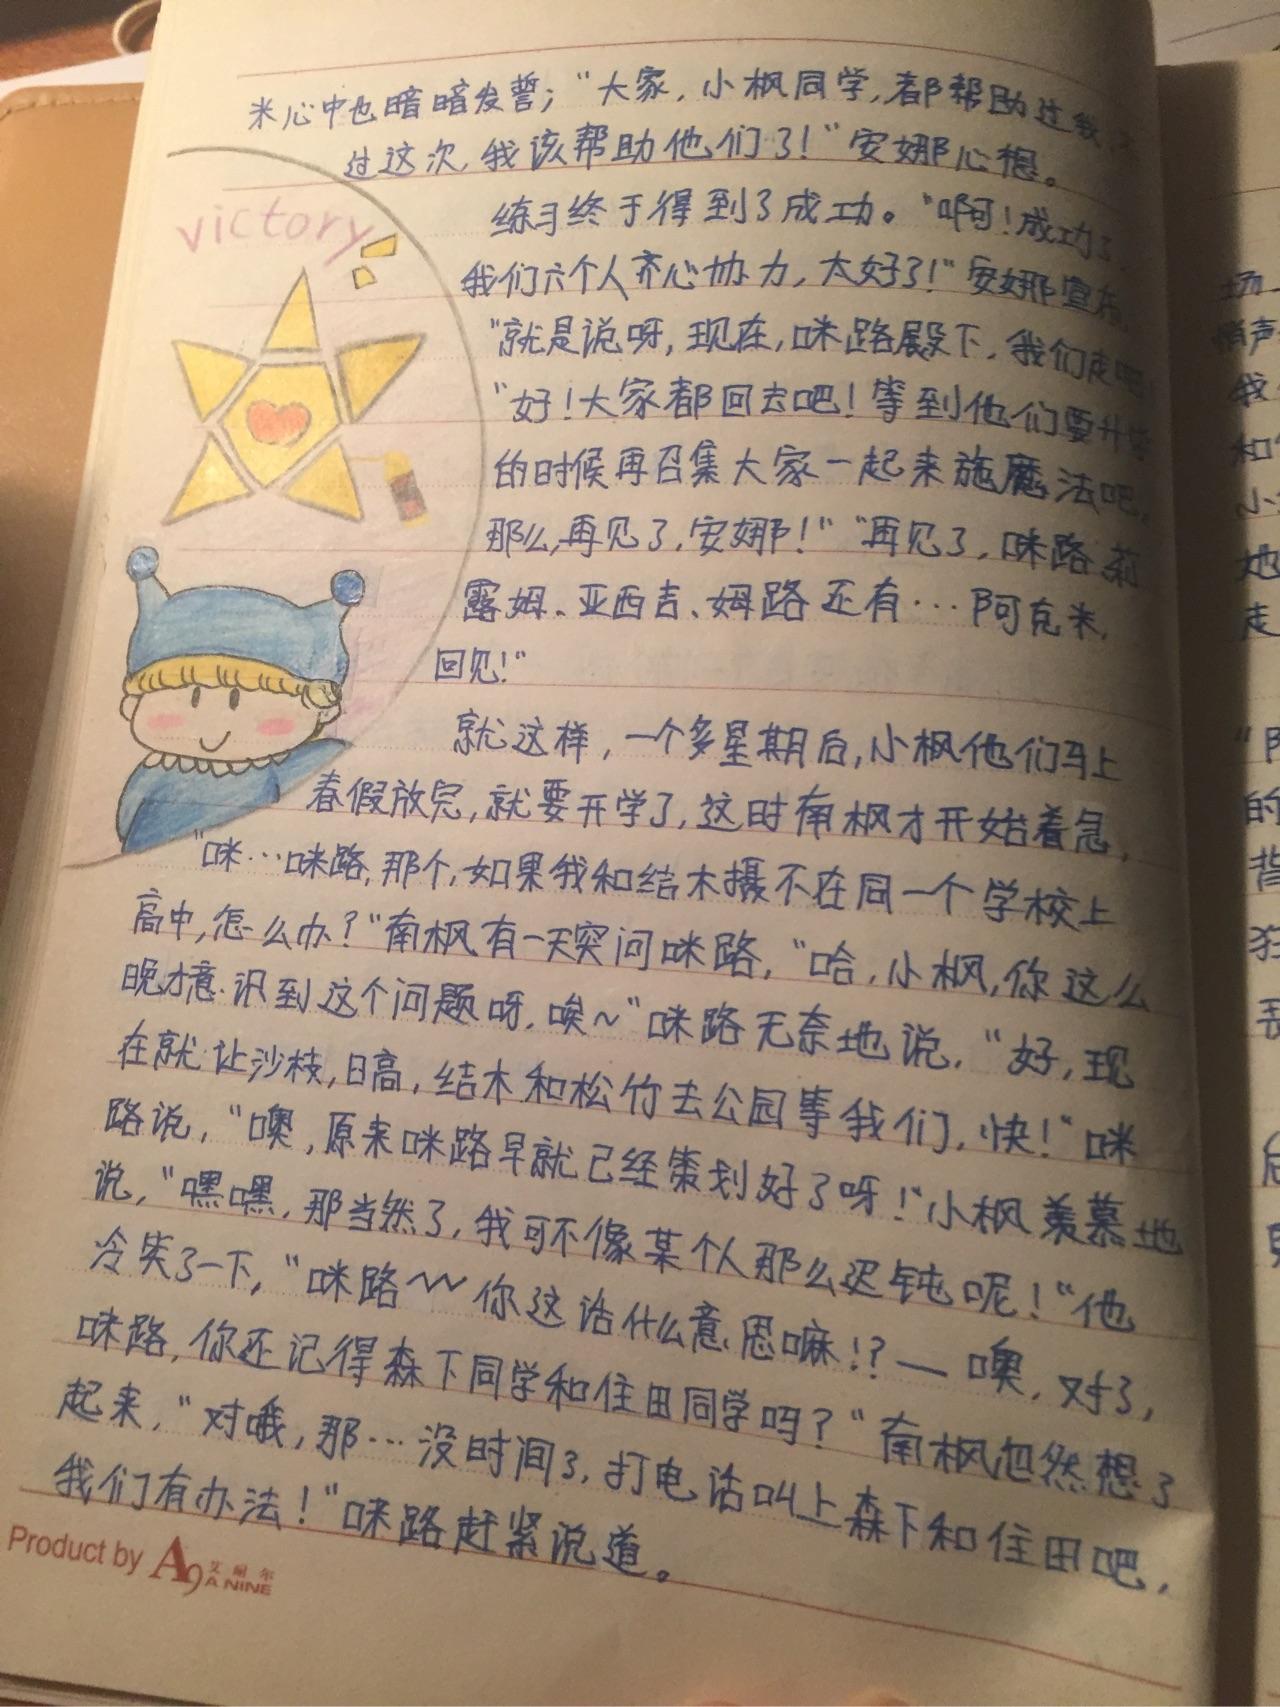 米心中也暗暗发誓；“大家，小枫同学，都帮助过我，
过这次，我该帮助他们了！”安娜心想。
victory
练习终于得到了成功。“啊！成功了，
我们六个人齐心协力，太好了！”安娜宣布，
“就是说呀，现在，咪路殿下，我们走吧！
“好！大家都回去吧！等到他们要升学
的时候再召集大家一起来施魔法吧，
那么，再见了，安娜！”“再见了，咪路、莉
露姆、亚西吉、姆路还有…阿克米，
回见！”
就这样，一个多星期后，小枫他们马上
春假放完，就要开学了，这时南枫才开始着急，
“咪…咪路，那个，如果我和结木摄不在同一个学校上
高中，怎么办？”南枫有一天突问咪路，“哈，小枫，你这么
晚才意识到这个问题呀，唉~”咪路无奈地说，“好，现
在就让沙枝，日高，结木和松竹去公园等我们，快！”咪
路说，“噢，原来咪路早就已经策划好了呀！”小枫羡慕地
说，“嘿嘿，那当然了，我可不像某个人那么迟钝呢！”他
冷笑了一下，“咪路~~你这话什么意思嘛！？— 噢，对了，
咪路，你还记得森下同学和住田同学吗？”南枫忽然想了
起来，“对哦，那…没时间了，打电话叫上森下和住田吧，
我们有办法！”咪路赶紧说道。
Product by A9 艾耐尔
A NINE
场
悄声
我
和
小
地
走
的
背